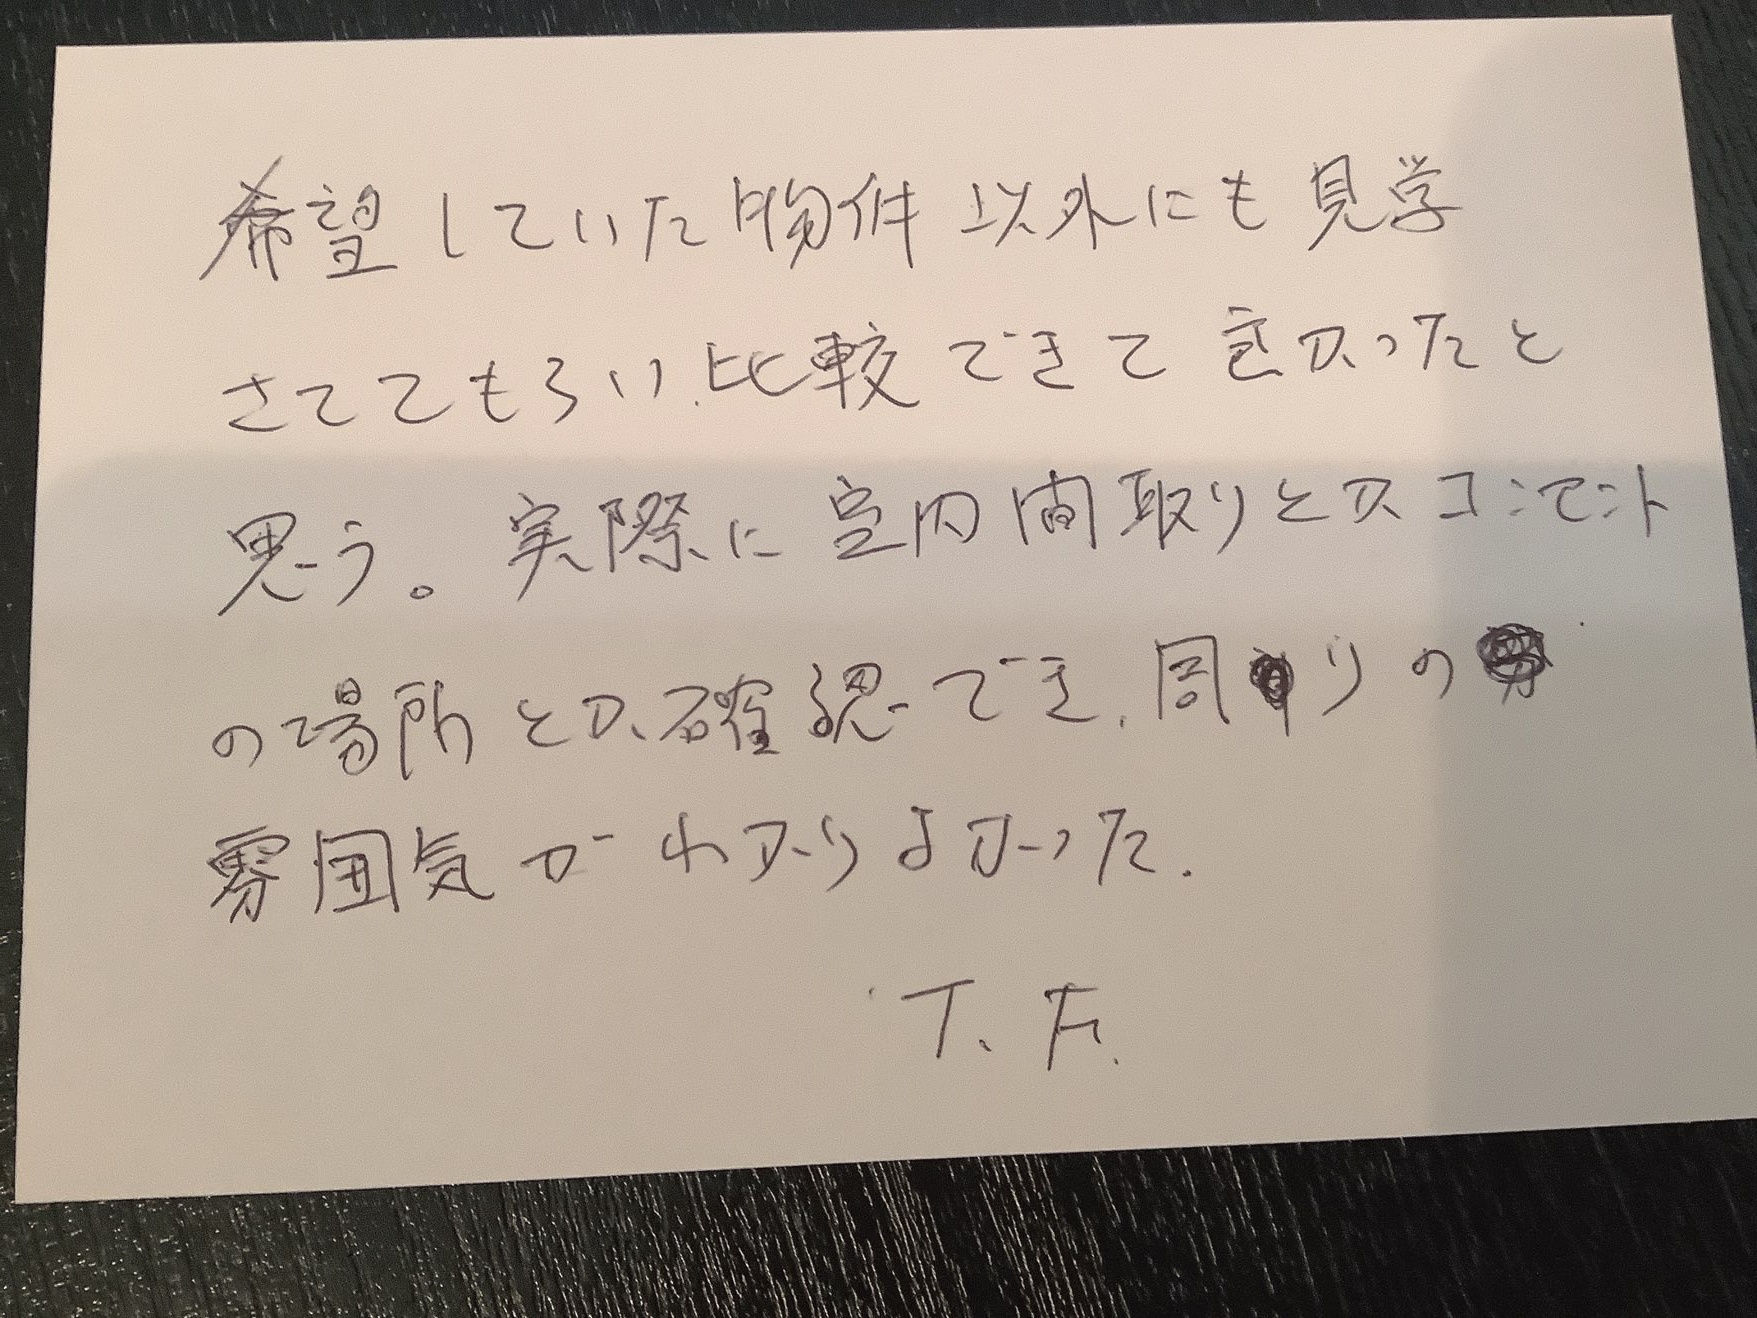 希望していた物件以外にも見学
さててもらい、比較できて良かったと
思う。実際に室内間取りとかコンセント
の場所とか確認でき、周りの
雰囲気がわかりよかった.
T. F.